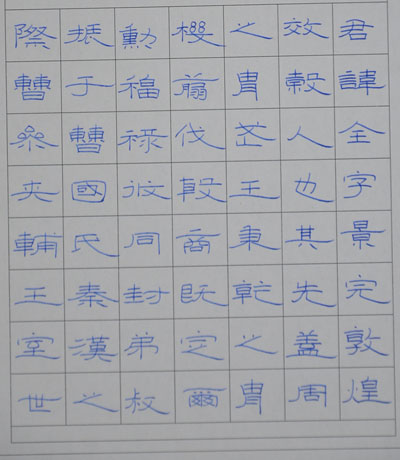 君諱全字景完敦煌
效穀人也其先蓋周
之胄武王秉乾之胄
機翦伐殷商既定爾
勳福祿攸同封弟叔
振于曹國氏秦漢之
際曹參夾輔王室世